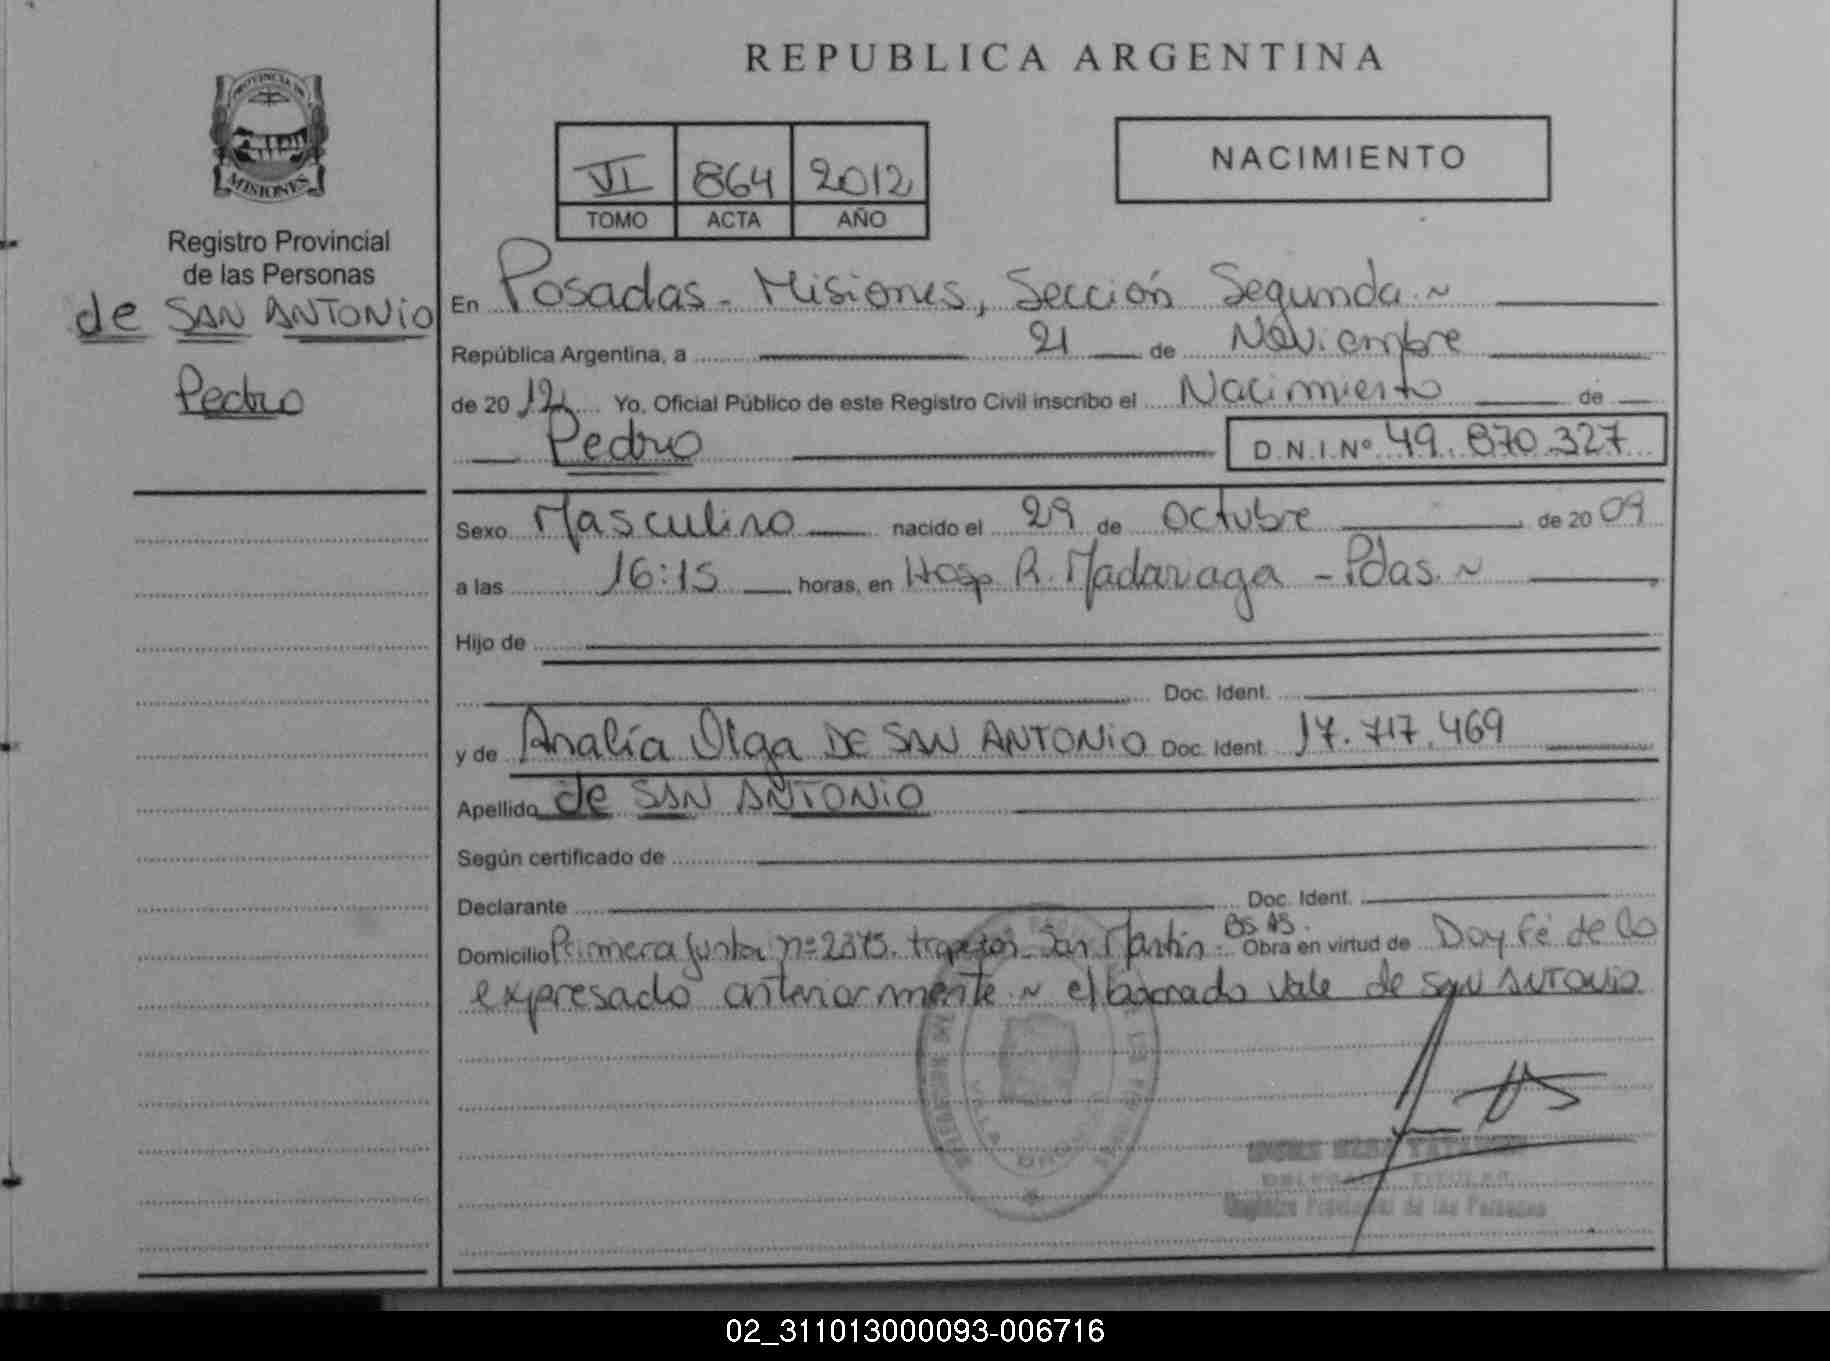 REPUBLICA ARGENTINA
PROVINCIA DE
MISIONES
Registro Provincial
de las Personas
de SAN ANTONIO
Pedro
VI 864 2012
TOMO ACTA AÑO
NACIMIENTO
En Posadas - Misiones, Sección Segunda ~
República Argentina, a 21 de Noviembre
de 2012 Yo, Oficial Público de este Registro Civil inscribo el Nacimiento de
Pedro D.N.I.Nº 49.870.327
Sexo Masculino nacido el 29 de Octubre de 2009
a las 16:15 horas, en Hosp R. Madariaga - Pdas. ~
Hijo de
Doc. Ident.
y de Analía Olga DE SAN ANTONIO Doc. Ident. 17.717.469
Apellido de SAN ANTONIO
Según certificado de
Declarante Doc. Ident.
Domicilio Primera Junta nº San Martín - BS AS. Obra en virtud de Doy fé de lo
expresado anteriormente ~ el borrado vale de SAN ANTONIO
Registro Provincial de las Personas
02_311013000093-006716